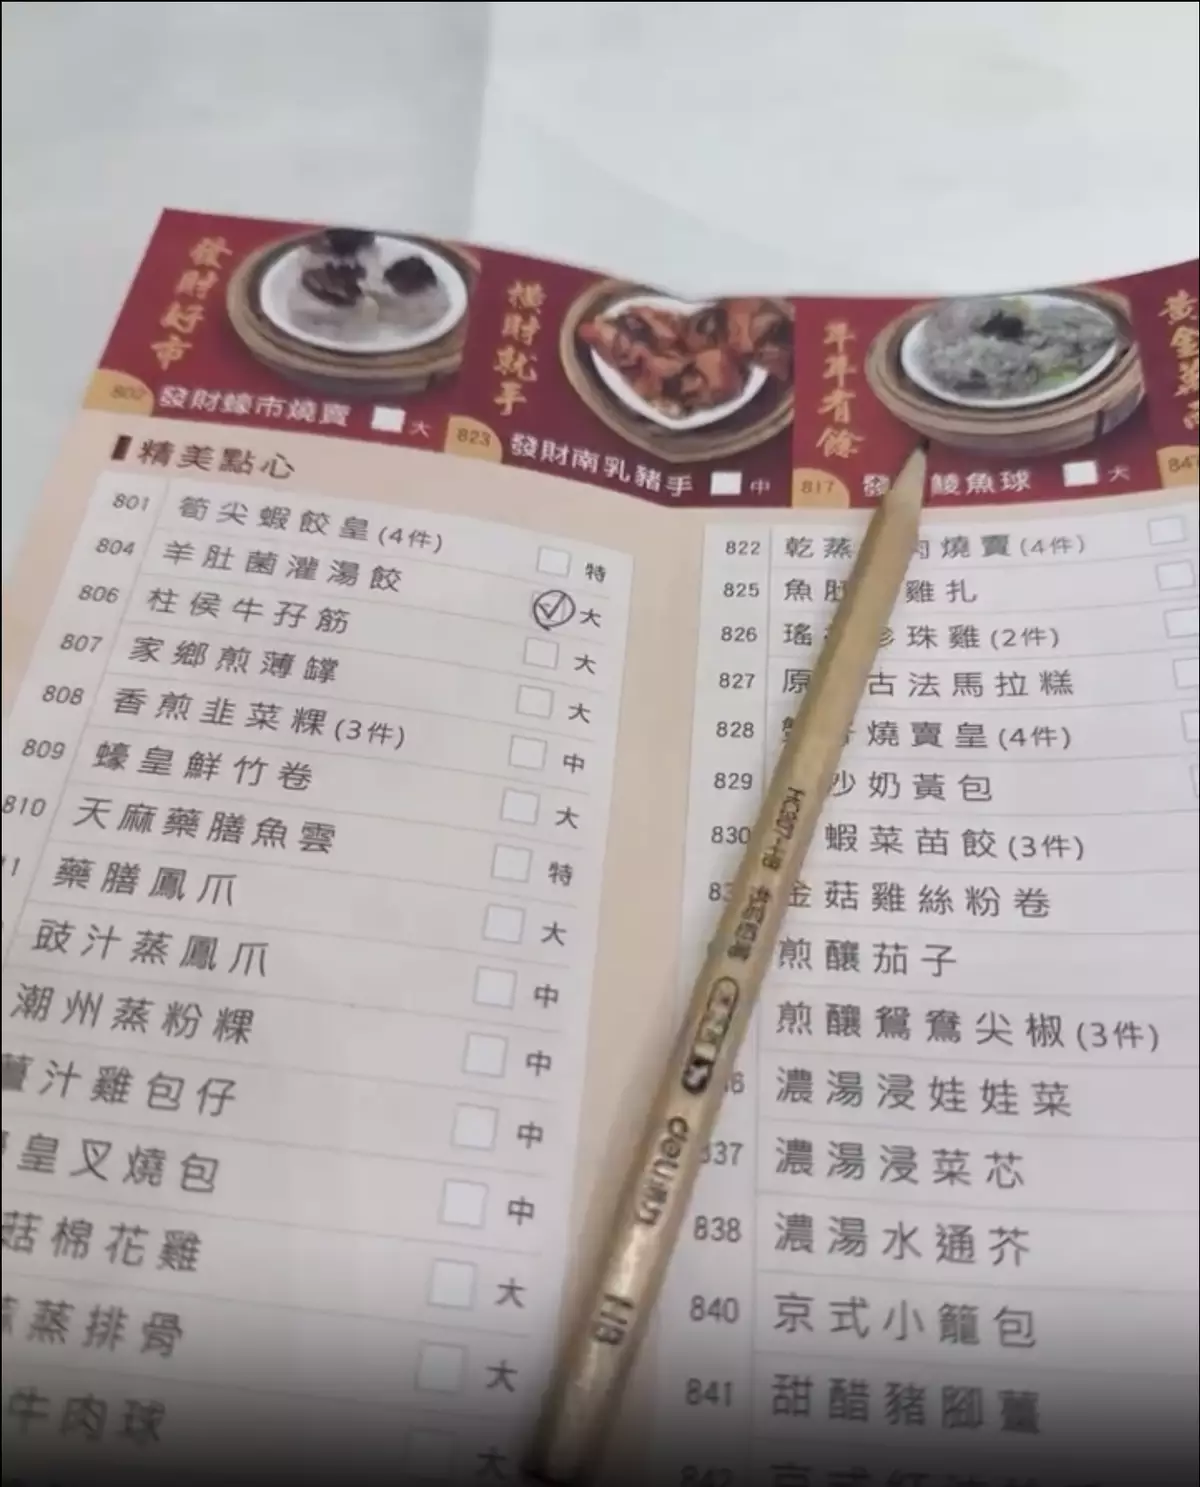 發財好市
802 發財蠔市燒賣 大
橫財就手
823 發財南乳豬手 中
年年有餘
817 發 鯪魚球 大
精美點心
801 筍尖蝦餃皇(4件) 特
804 羊肚菌灌湯餃 大
806 柱侯牛孖筋 大
807 家鄉煎薄罉 大
808 香煎韭菜粿(3件) 中
809 蠔皇鮮竹卷 大
810 天麻藥膳魚雲 特
藥膳鳳爪 大
豉汁蒸鳳爪 中
潮州蒸粉粿 中
薑汁雞包仔 中
皇叉燒包 中
菇棉花雞 大
蒸排骨 大
牛肉球 大
822 乾蒸 肉燒賣(4件)
825 魚肚 雞扎
826 瑤 珍珠雞(2件)
827 原 古法馬拉糕
828 燒賣皇(4件)
829 沙奶黃包
830 蝦菜苗餃(3件)
金菇雞絲粉卷
煎釀茄子
煎釀鴛鴦尖椒(3件)
濃湯浸娃娃菜
837 濃湯浸菜芯
838 濃湯水通芥
840 京式小籠包
841 甜醋豬腳薑
842 京式
HB
deli 得力